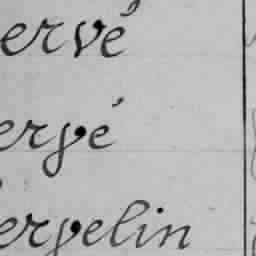 ervé
ergé
ergelin